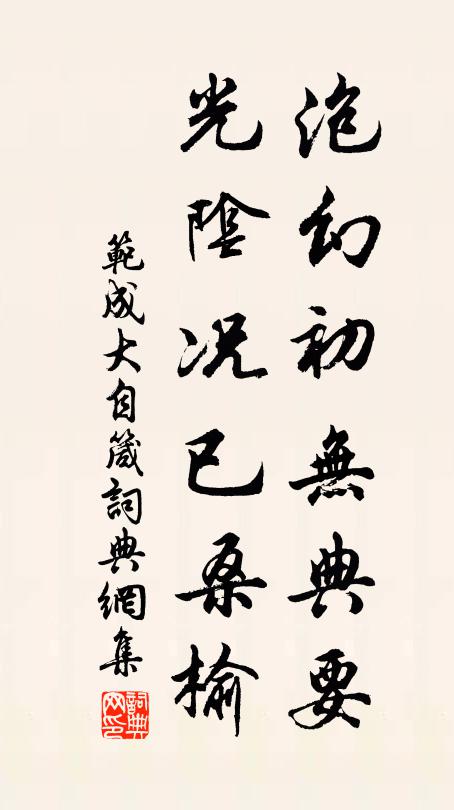 泡幻初無典要
光陰況已桑榆
範成大自箴詞典網集
詞典网印